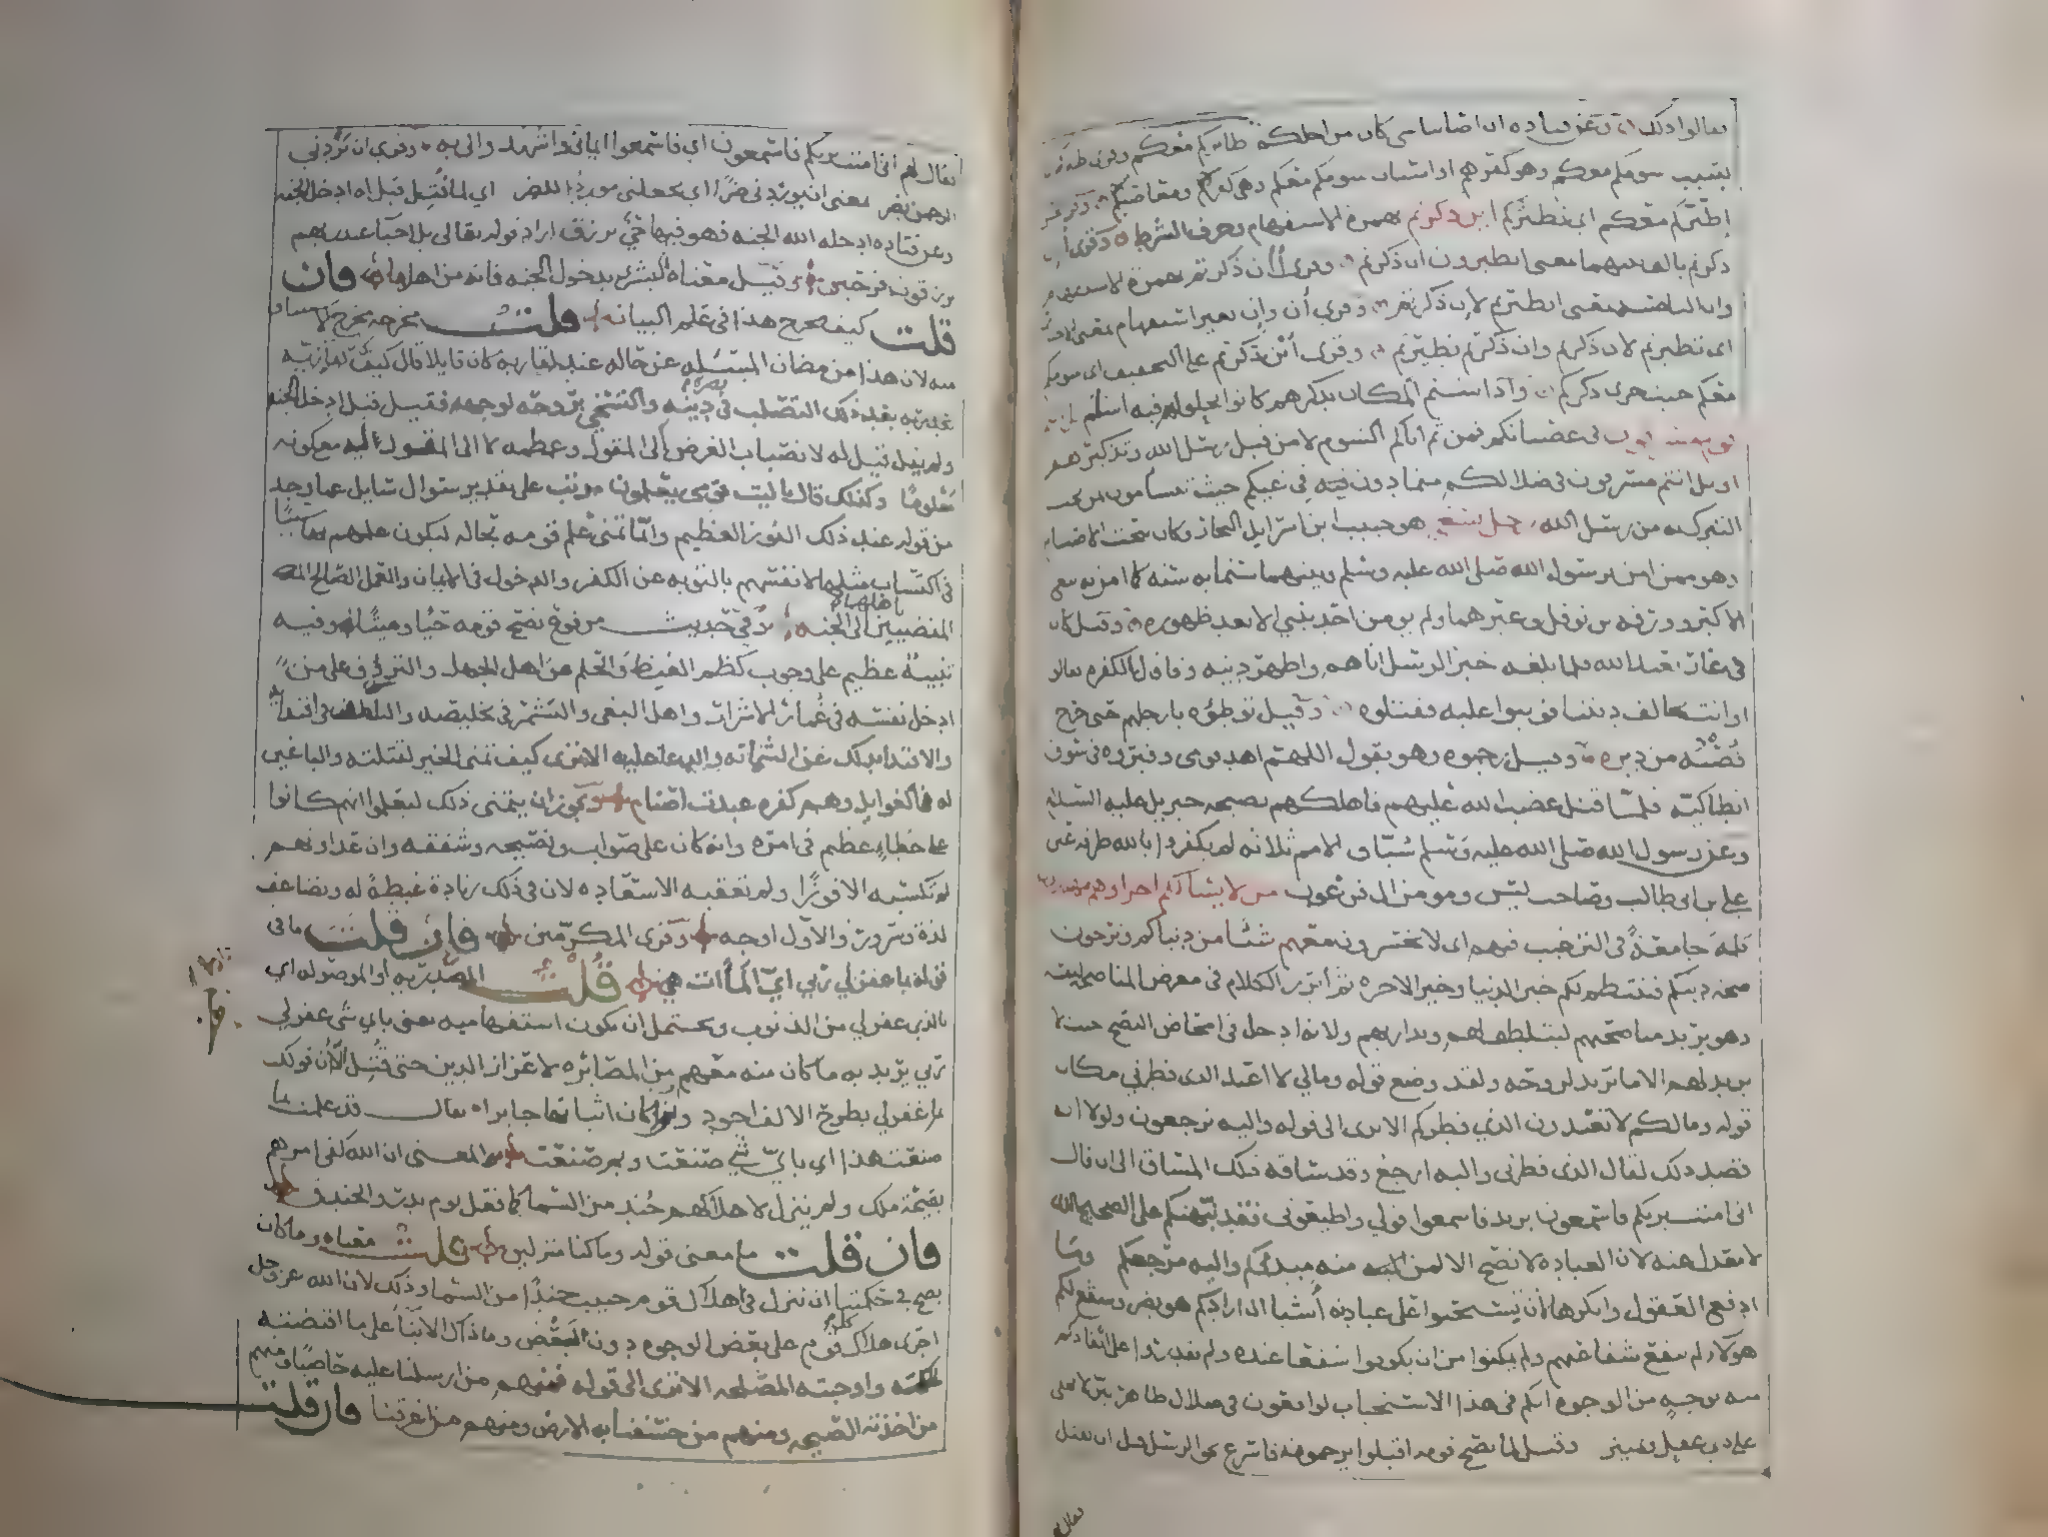 قالوا ذلك وعن قتادة ان اصابنا شي كان من اجلكم طائركم معكم وقرئ طيركم
بسبب شومكم معكم وهو كفرهم او اسباب شومكم معكم وهي كفرهم ومعاصيهم
اطيركم معكم اي تطيركم اين ذكرتم بهمزة الاستفهام وحرف الشرط وقرئ
ذكرتم بالف بينهما بمعنى اتطيرون ان ذكرتم وقرئ أأن ذكرتم بهمزة الاستفهام
وان الناصبة بمعنى اتطيرتم لان ذكرتم وقرئ أن وإن بغير استفهام بمعنى
اي تطيرتم لان ذكرتم وان ذكرتم تطيرتم وقرئ أين ذكرتم على التخفيف اي شومكم
معكم حيث جرى ذكركم واذا شئم المكان بذكرهم كانوا بحلولهم فيه اشأم بل انتم
قوم مسرفون في عصيانكم فمن ثم اتاكم الشوم لا من قبل رسل الله وتذكيرهم
او بل انتم مسرفون في ضلالكم متمادون في غيكم حيث تتشامون بمن يجب
التبرك به من رسل الله رجل يسعى هو حبيب ابن اسرايل النجار وكان ينحت الاصنام
وهو ممن امن برسول الله صلى الله عليه وسلم وبينهما ستماية سنة كما امن به تبع
الاكبر وورقة بن نوفل وغيرهما ولم يومن احد بنبي الا بعد ظهوره وقيل كان
في غار يعبد الله فلما بلغه خبر الرسل اتاهم واظهر دينه وقاول الكفرة فقالوا
اوانت تخالف ديننا فوثبوا عليه فقتلوه وقيل توطؤه بارجلهم حتى خرج
قصبه من دبره وقيل رجموه وهو يقول اللهم اهد قومي وقبره في سوق
انطاكية فلما قتل غضب الله عليهم فاهلكهم بصيحة جبريل عليه السلام
وعن رسول الله صلى الله عليه وسلم سباق الامم ثلاثة لم يكفروا بالله طرفة عين
علي بن ابي طالب وصاحب يس ومومن ال فرعون من لا يسالكم اجرا وهم مهتدون
كلمة جامعة في الترغيب فيهم اي لا تخسرون معهم شيئا من دنياكم وتربحون
صحة دينكم فينتظم لكم خير الدنيا وخير الاخرة ثم ابرز الكلام في معرض المناصحة لنفسه
وهو يريد مناصحتهم ليتلطف لهم ويداريهم ولانه ادخل في امحاض النصح حيث لا
يريد لهم الا ما يريد لروحه ولقد وضع قوله ومالي لا اعبد الذي فطرني مكان
قوله ومالكم لا تعبدون الذي فطركم الا ترى الى قوله واليه ترجعون ولولا انه
قصد ذلك لقال الذي فطرني واليه ارجع وقد ساقه ذلك المساق الى ان قال
اني امنت بربكم فاسمعون يريد فاسمعوا قولي واطيعوني فقد نبهتكم على الصحيح الذي
لا معدل عنه لان العبادة لا تصح الا لمن منه مبدءكم واليه مرجعكم وما
ادفع العقول وانكرها لأن تستحبوا على عبادته أشيا ان ارادكم هو بضر وشفع لكم
هولاء لم تنفع شفاعتهم ولم يمكنوا من ان يكونوا شفعا عنده ولم يقدروا على انقاذكم
منه بوجه من الوجوه انكم في هذا الاستحباب لواقعون في ضلال ظاهر بين لا يخفى
على ذي عقل وتمييز وقيل لما نصح قومه اقبلوا يرجمونه فاسرع نحو الرسل قبل ان يقتل
فقال
فقال لهم اني امنت بربكم فاسمعون اي فاسمعوا ايماني واشهدوا لي به وقرئ ان يردني
الرحمن بضر بمعنى ان يوردني ضرا اي يجعلني موردا للضر اي لما قتل قيل له ادخل الجنة
وعن قتادة ادخله الله الجنة فهو فيها حي يرزق اراد قوله تعالى بل احياء عند ربهم
يرزقون فرحين وقيل معناه البشرى بدخول الجنة فانه من اهلها فان
قلت كيف مخرج هذا في علم البيان قلت مخرجه مخرج الاستيناف
منه لان هذا من مضان المسئلة عن حاله عند لقا ربه كان قايلا قال كيف لقا ربه
بعد ذلك التصلب في نصرة دينه والتسخي بروحه لوجهه فقيل قيل ادخل الجنة
ولم يقل قيل له لانصباب الغرض الى المقول وعظمه لا الى المقول له مع كونه
معلوما وكذلك قال يا ليت قومي يعلمون مرتب على تقدير سئوال سايل عما وجد
من قوله عند ذلك الفوز العظيم وانما تمنى علم قومه بحاله ليكون علمهم بها سببا
في اكتساب مثلها لانفسهم بالتوبة عن الكفر والدخول في الايمان والعمل الصالح
المفضيين باهلهما الى الجنة وفي حديث مرفوع نصح قومه حيا وميتا وفيه
تنبيه عظيم على وجوب كظم الغيظ والحلم عن اهل الجهل والترؤف على من
ادخل نفسه في غمار الاشرار واهل البغي والتشمر في تخليصه والتلطف في افتدايه
والاشتغال بذلك عن الشماتة به والدعا عليه الا ترى كيف تمنى الخير لقتلته والباغين
له الغوايل وهم كفرة عبدة اصنام ويجوز ان يتمنى ذلك ليعلموا انهم كانوا
على خطاء عظيم في امره وانه كان على صواب ونصيحة وشفقة وان عداوتهم
لم تكسبه الا فوزا ولم تعقبه الا سعادة لان في ذلك زيادة غبطة له وتضاعف
لذة وسرور والاول اوجه وقرئ المكرمين فان قلت ما في
قوله بما غفر لي ربي اي الماأت هي قلت المصدرية أو الموصولة اي
بالذي غفر لي من الذنوب ويحتمل ان يكون استفهامية يعني باي شي غفر لي
ربي يريد به ما كان منه معهم من المصابرة لاعزاز الدين حتى قتل الا أن قولك
بم غفر لي بطرح الالف اجود وان كان اثباتها جايزا يقال قد علمت بما
صنعت هذا اي باي شي صنعت وبم صنعت والمعنى ان الله كفى امرهم
بصيحة ملك ولم ينزل لاهلاكهم جند من السما كما فعل يوم بدر والخندق
فان قلت ما معنى قوله وما كنا منزلين قلت معناه وما كان
يصح في حكمتنا ان ننزل في اهلاك قوم حبيب جندا من السما وذلك لان الله عز وجل
اجرى هلاك كل قوم على بعض الوجوه دون البعض وما ذاك الا بناء على ما اقتضته
الحكمة واوجبته المصلحة الا ترى الى قوله فمنهم من ارسلنا عليه حاصبا ومنهم
من اخذته الصيحة ومنهم من خسفنا به الارض ومنهم من اغرقنا فان قلت